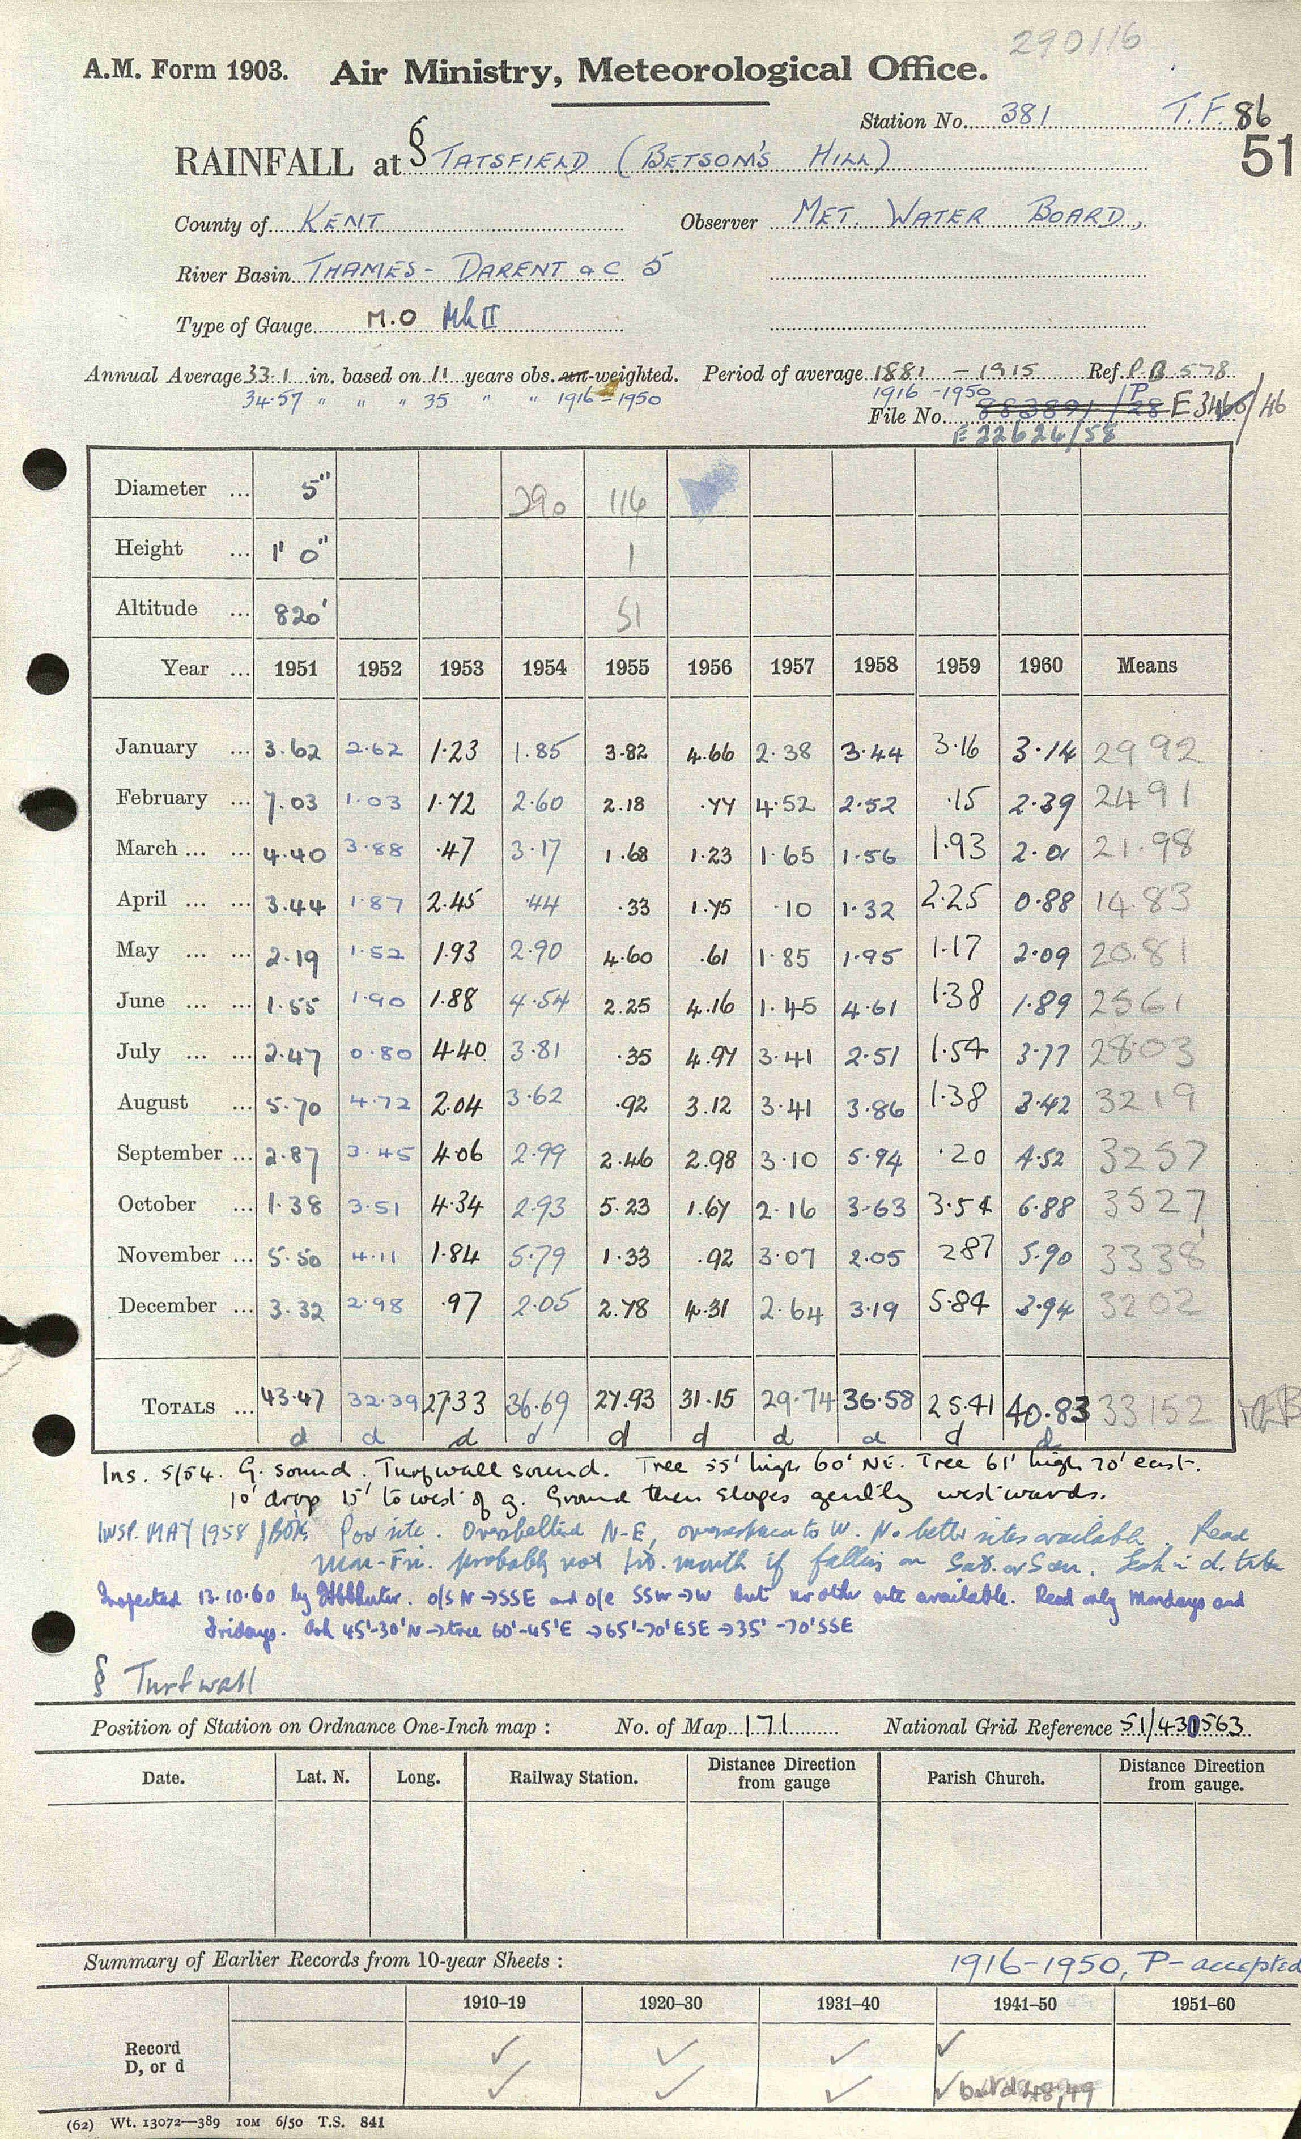 290116
A.M. Form 1903. Air Ministry, Meteorological Office.
Station No. 381 T.F. 86
51
RAINFALL at § TATSFIELD (BETSOM'S HILL)
County of KENT Observer MET. WATER BOARD,
River Basin THAMES - DARENT &c 5
Type of Gauge M.O Mk II
Annual Average 33.1 in. based on 11 years obs. un-weighted. Period of average 1881 - 1915 Ref. P B 578
34.57 " " " 35 " " 1916-1950 1916-1950
File No. 883891/P28 E 3466/46
E 22624/58
Diameter ... 5" 290 116
Height ... 1' 0" 1
Altitude ... 820' 51
Year ... 1951 1952 1953 1954 1955 1956 1957 1958 1959 1960 Means
January ... 3.62 2.62 1.23 1.85 3.82 4.66 2.38 3.44 3.16 3.14 29 92
February ... 7.03 1.03 1.72 2.60 2.18 .77 4.52 2.52 .15 2.39 24 91
March ... ... 4.40 3.88 .47 3.17 1.68 1.23 1.65 1.56 1.93 2.01 21.98
April ... ... 3.44 1.87 2.45 .44 .33 1.75 .10 1.32 2.25 0.88 14.83
May ... ... 2.19 1.52 1.93 2.90 4.60 .61 1.85 1.95 1.17 2.09 20.81
June ... ... 1.55 1.90 1.88 4.54 2.25 4.16 1.45 4.61 1.38 1.89 25 61
July ... ... 2.47 0.80 4.40 3.81 .35 4.97 3.41 2.51 1.54 3.77 28 03
August ... 5.70 4.72 2.04 3.62 .92 3.12 3.41 3.86 1.38 3.42 32 19
September ... 2.87 3.45 4.06 2.99 2.46 2.98 3.10 5.94 .20 4.52 32 57
October ... 1.38 3.51 4.34 2.93 5.23 1.67 2.16 3.63 3.54 6.88 35 27
November ... 5.50 4.11 1.84 5.79 1.33 .92 3.07 2.05 2 87 5.90 33 38
December ... 3.32 2.98 .97 2.05 2.78 4.31 2.64 3.19 5.84 3.94 32 02
TOTALS ... 43.47 32.39 27.33 36.69 27.93 31.15 29.74 36.58 25.41 40.83 331 52
d d d d d d d d d d
Ins. 5/54. G. sound. Turfwall sound. Tree 55' high 60' NE. Tree 61' high 70' east.
10' drop 15' to west of g. Ground then slopes gently westwards.
INSP. MAY 1958 Poor site. Oversheltered N-E, overexposure to W. No better sites available. Read
Mon-Fri. probably not 1st. month if falling on Sat. or Sun. in d. tube
Inspected 13.10.60 by o/s N→SSE and o/e SSW→W but no other site available. Read only Mondays and
Fridays. 45'-30' N → tree 60'-45' E → 65'-70' ESE → 35'-70' SSE
§ Turfwall
Position of Station on Ordnance One-Inch map : No. of Map 171 National Grid Reference 51/430563
Date. Lat. N. Long. Railway Station. Distance Direction from gauge Parish Church. Distance Direction from gauge.
Summary of Earlier Records from 10-year Sheets : 1916-1950, P - accepted
1910-19 1920-30 1931-40 1941-50 1951-60
Record
D, or d ✓ ✓ ✓ ✓
✓ ✓ ✓ ✓ 48, 49
(62) Wt. 13072—389 10M 6/50 T.S. 841